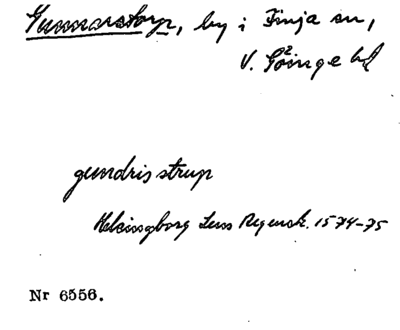 Gunnarstorp, by i Finja sn,
V. Göinge hd
gundris strup
Helsingborg Lens Regensk. 1574-75
Nr 6556.